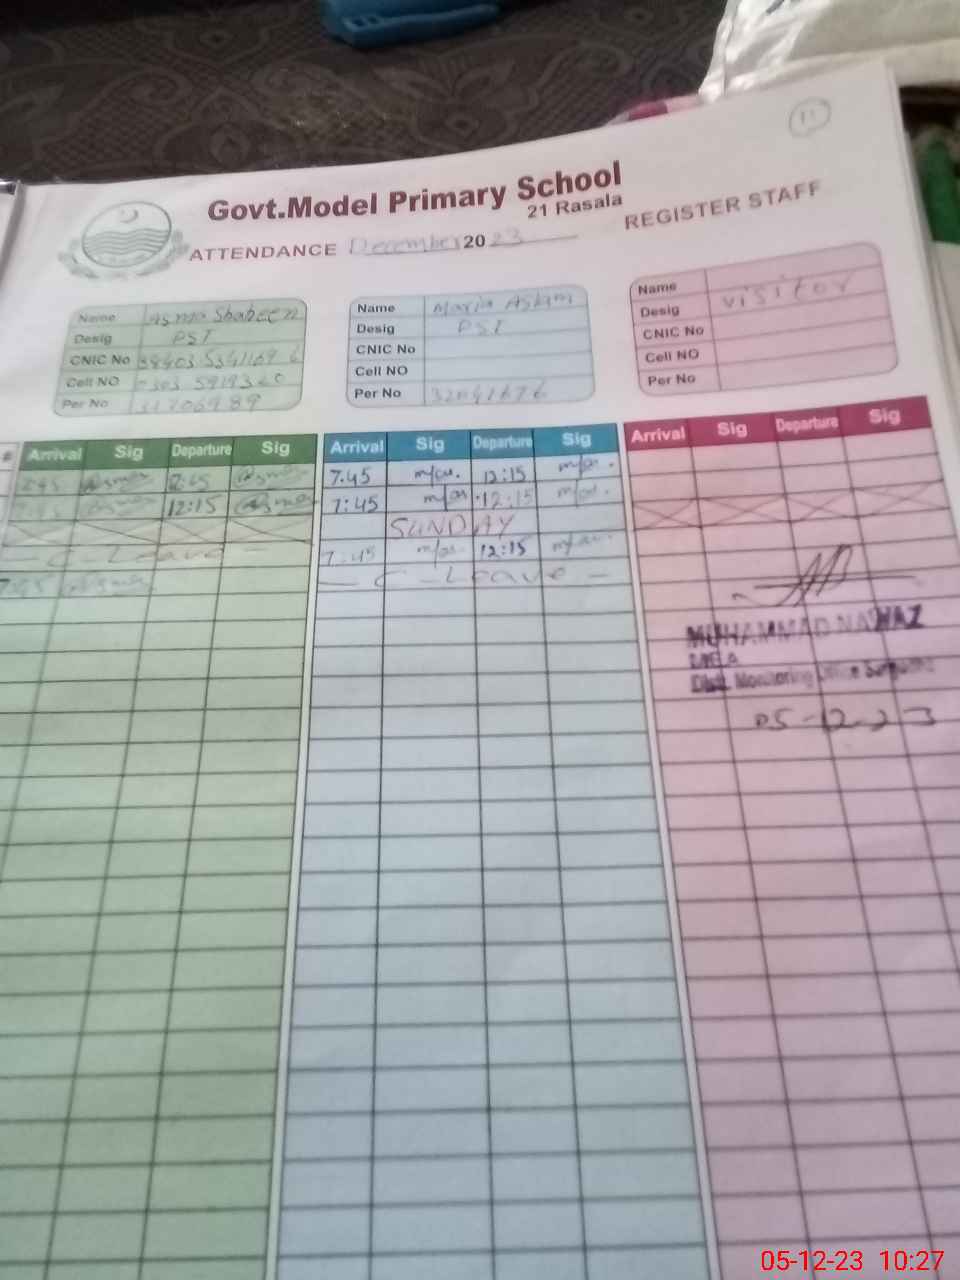 11
Govt.Model Primary School
21 Rasala
ATTENDANCE December 2023 REGISTER STAFF
Name Asma Shaheen
Desig PST
CNIC No
Cell NO
Per No 31706989
Name Maria Aslam
Desig PST
CNIC No
Cell NO
Per No 32041676
Name visitor
Desig
CNIC No
Cell NO
Per No
# Arrival Sig Departure Sig
7:45
12:15
- C - Leave -
7:45
Arrival Sig Departure Sig
7:45 12:15
7:45 12:15
SUNDAY
7:45 12:15
- C - Leave -
Arrival Sig Departure Sig
MUHAMMAD NAWAZ
Distt. Monitoring Office Sargodha
05-12-23
05-12-23 10:27